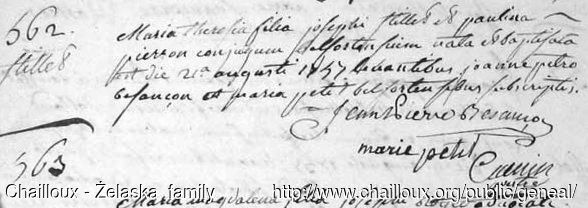 562.
Stilles
Maria theresia filia josephi Stilles & paulina
pierron conjugum belfortensium nata & baptisata
est die 21a augusti 1757 levantibus joanne petro
besançon et maria petit belfortensibus subscriptis.
Jean pierre Besançon
marie petit
563
Maria magdalena filia josephi
Chailloux - Żelaska family http://www.chailloux.org/public/geneal/